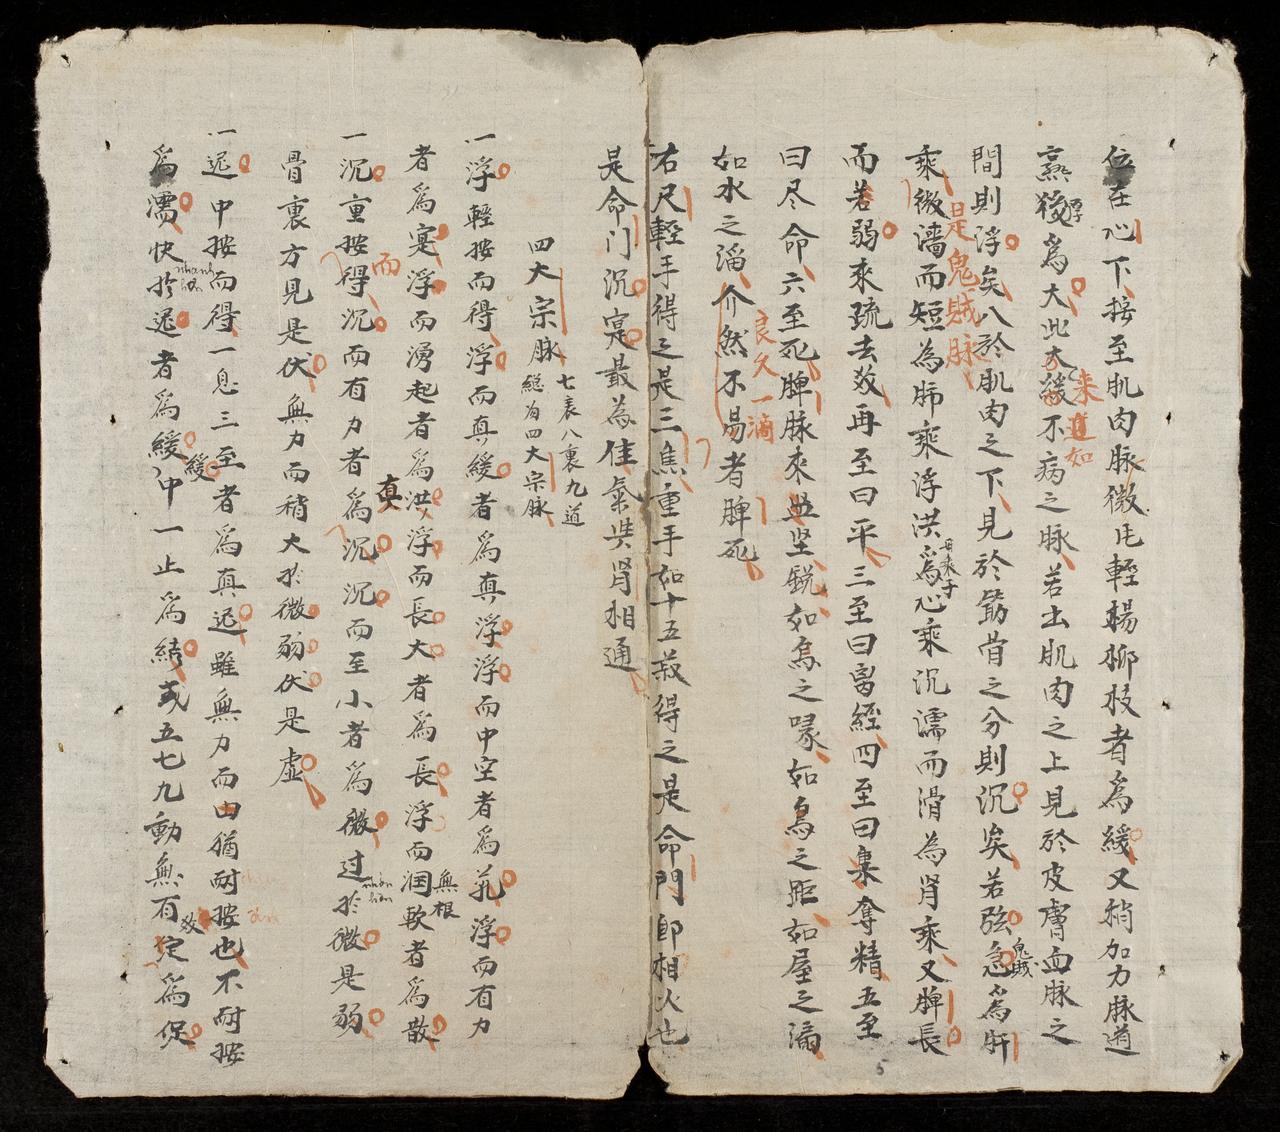 位在心下按至肌肉脉微
輕楊柳枝者為緩又稍加力脉道
為大此太緩不病之脉若出肌肉之上見於皮膚血脉之
浮
来道如
間則浮矣八於肌肉之下見於筋骨之分則沉矣若弦急為肝
鬼賊
乘微濇而短為肺乘浮洪為心乘沉濡而滑為腎乘又脾長
是鬼賊脉
母乘子
而若弱來疏去数再至曰平三至曰离經四至曰奪精五至
曰尽命六至死脾脉來坚鋭如鳥之喙如鳥之距如屋之漏
良久一滴
如水之溜介然不易者脾死
右尺輕手得之是三焦重手如十五菽得之是命門即相火也
是命门沉寔最為佳氣與腎相通
四大宗脉
七表八裏九道
總為四大宗脉
一浮輕按而得浮而真緩者為真浮浮而中空者為芤浮而有力
者為寔浮而湧起者為洪浮而長大者為長浮而軟者為散
無根
一沉重按得沉而有力者為沉沉而至小者為微过於微是弱
而
真
nhân
骨裏方見是伏無力而稍大於微弱伏是虛
一遲中按而得一息三至者為真遲雖無力而由猶耐按也不耐按
為濡快於遲者為緩中一止為結或五七九動無有定為促
nhanh hơn
緩
数